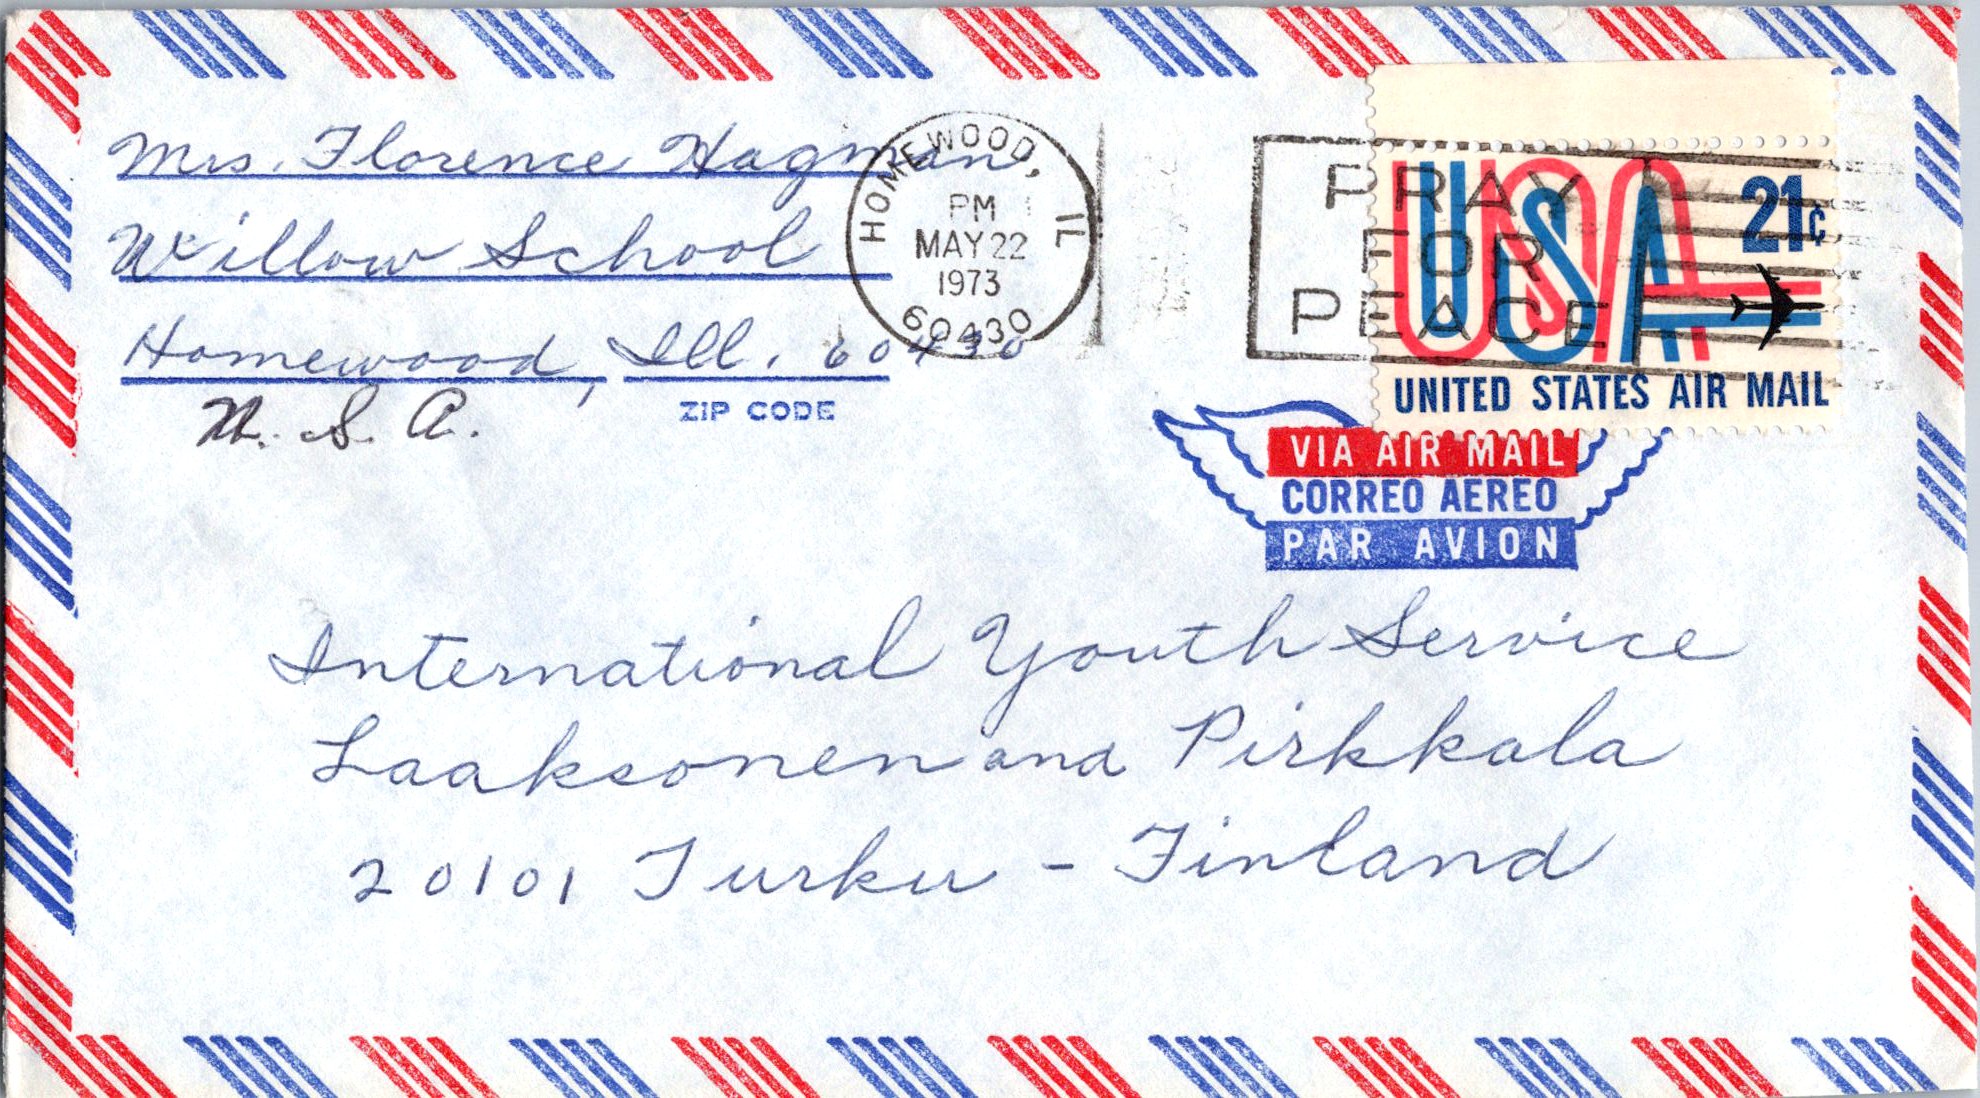 Mrs. Florence Hagman
Willow School
Homewood, Ill. 60430
ZIP CODE
U. S. A.
HOMEWOOD, IL
PM
MAY 22
1973
60430
PRAY
FOR
PEACE
USA
21¢
UNITED STATES AIR MAIL
VIA AIR MAIL
CORREO AEREO
PAR AVION
International Youth Service
Laaksonen and Pirkkala
20101 Turku - Finland